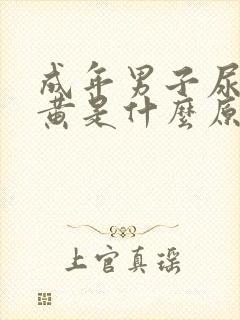 成年男子尿
黄是什麼原
上官真瑶